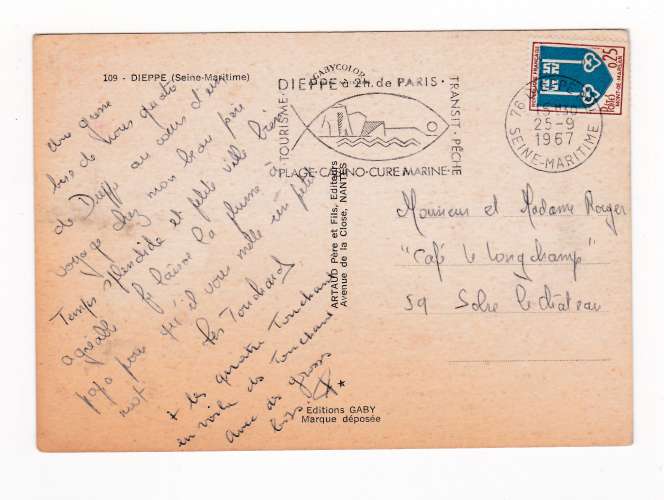 109 - DIEPPE (Seine-Maritime)
GABYCOLOR
DIEPPE à 2h. de PARIS
TOURISME
TRANSIT - PÊCHE
PLAGE - CASINO - CURE MARINE
REPUBLIQUE FRANÇAISE
0,25
POSTES
MONT-DE-MARSAN
76
25-9
1967
SEINE-MARITIME
une grosse
bise de nous quatre
de Dieppe au cours d'un
voyage chez mon beau père
Temps splendide et petite ville bien
agréable Je laisse la plume à
papa pour qu'il vous mette un petit
mot les Touchard
+ les quatre Touchard
en voilà des Touchard
avec des grosses
bises
ARTAUD Père et Fils, Editeurs
Avenue de la Close, NANTES
Monsieur et Madame Roger
"Café le Longchamp"
59 Solre le château
Editions GABY
Marque déposée